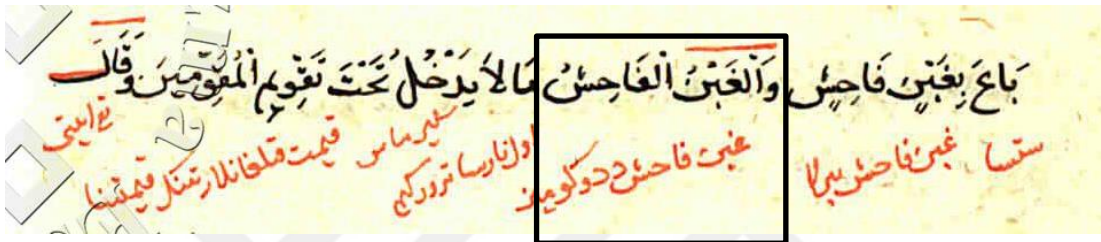 بَاعَ بِغَبْنٍ فَاحِشٍ وَالْغَبْنُ الْفَاحِشُ مَا لَا يَدْخُلُ تَحْتَ تَقْوِيمِ الْمُقَوِّمِينَ وَقَالَ
ستسا غبن فاحش بيرلا غبن فاحش ددوكوميز اول نارسا ترور كيم كيرماس قيمت قلغانلار تينكل قيمتينا